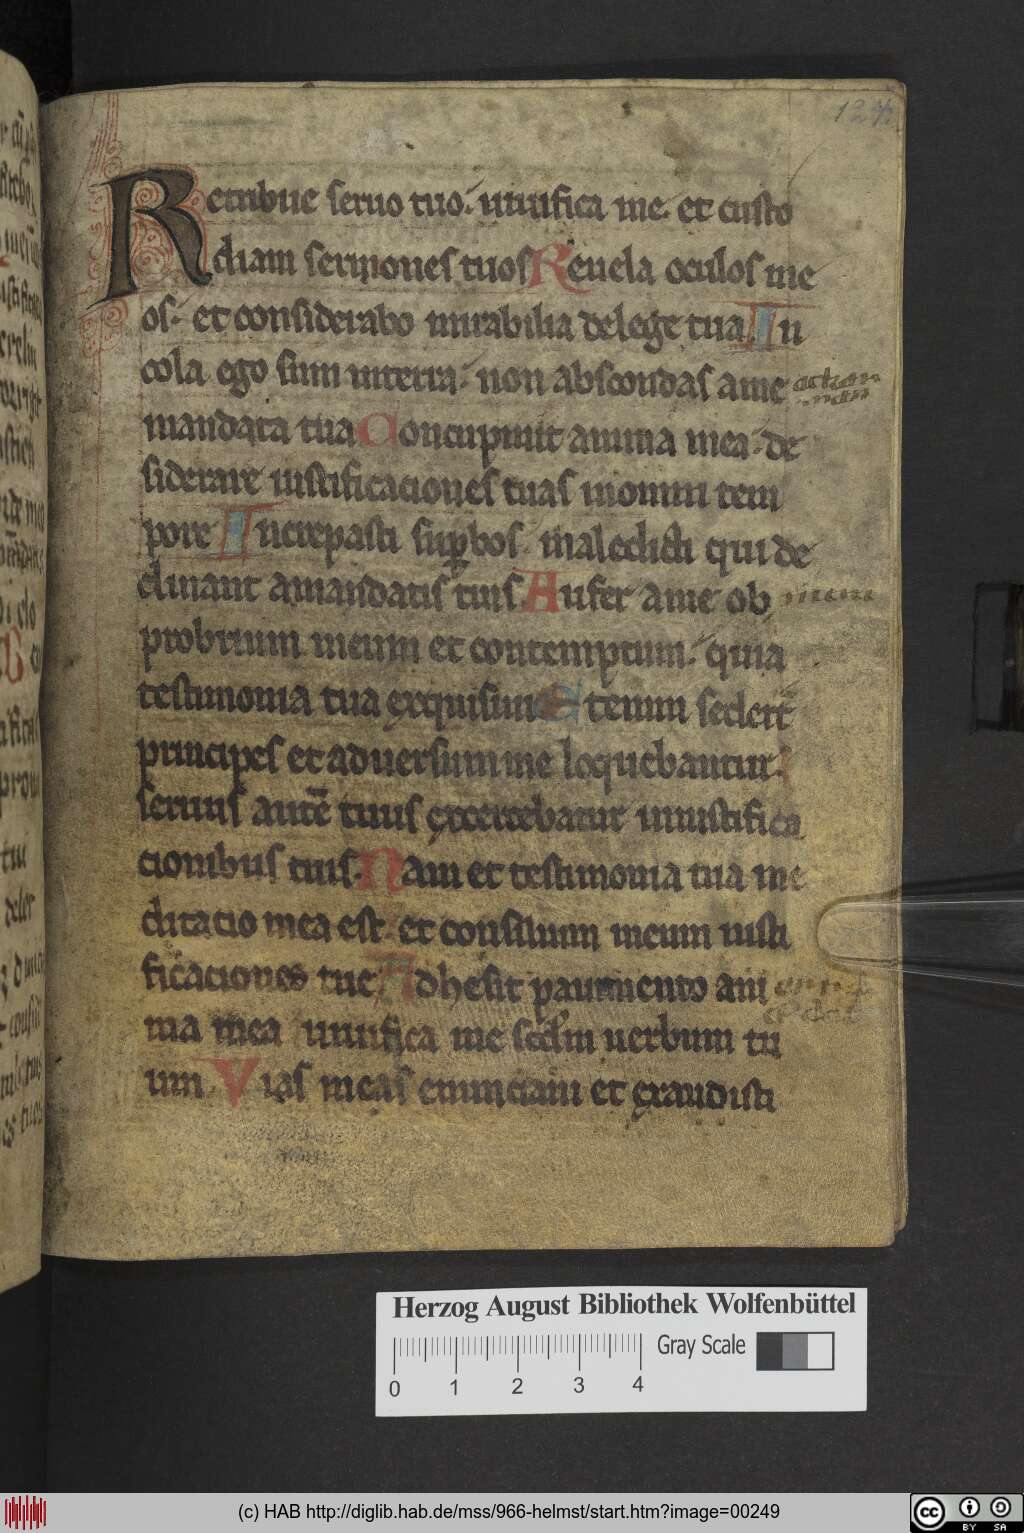 Retribue seruo tuo. uiuifica me. et custo
diam sermones tuos Reuela oculos me
os. et considerabo mirabilia de lege tua. In
cola ego sum in terra. non abscondas a me
mandata tua Concupiuit anima mea. de
siderare iustificaciones tuas in omni tem
pore Increpasti supbos. maledicti qui de
clinant a mandatis tuis. Aufer a me ob
probrium meum et contemptum. quia
testimonia tua exquisiui Etenim sedert̄
principes et aduersum me loquebantur.
seruus autē tuus exercebatur in iustifica
cionibus tuis. Nam et testimonia tua me
ditacio mea est. et consilium meum iusti
ficaciones tue. Adhesit paumento ani
ma mea uiuifica me scdm uerbum tu
um Vias meas enunciaui et exaudisti
Herzog August Bibliothek Wolfenbüttel
Gray Scale
0 1 2 3 4
(c) HAB http://diglib.hab.de/mss/966-helmst/start.htm?image=00249
cc BY SA